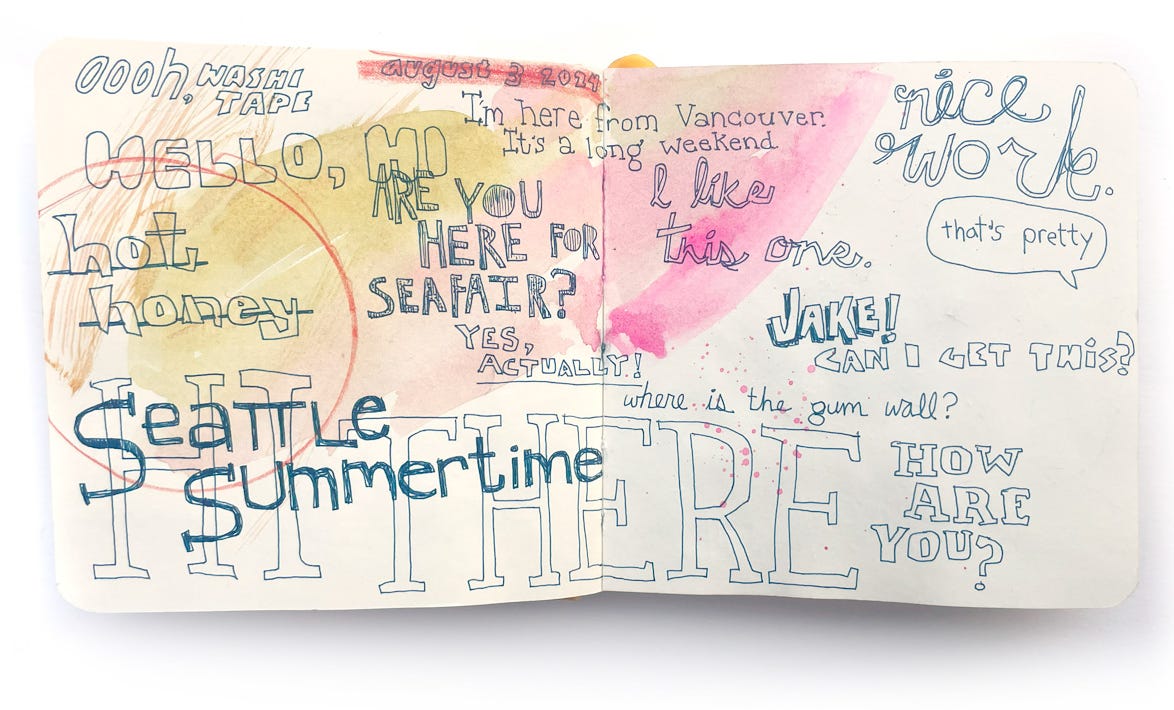 oooh, WASHI
TAPE
august 3 2024
HELLO, HI
I'm here from Vancouver.
It's a long weekend
nice
work.
ARE YOU
HERE FOR
SEAFAIR?
YES,
ACTUALLY!
hot
honey
I like
this one.
that's pretty
JAKE!
CAN I GET THIS?
where is the gum wall?
Seattle
Summertime
HI THERE
HOW
ARE
YOU?